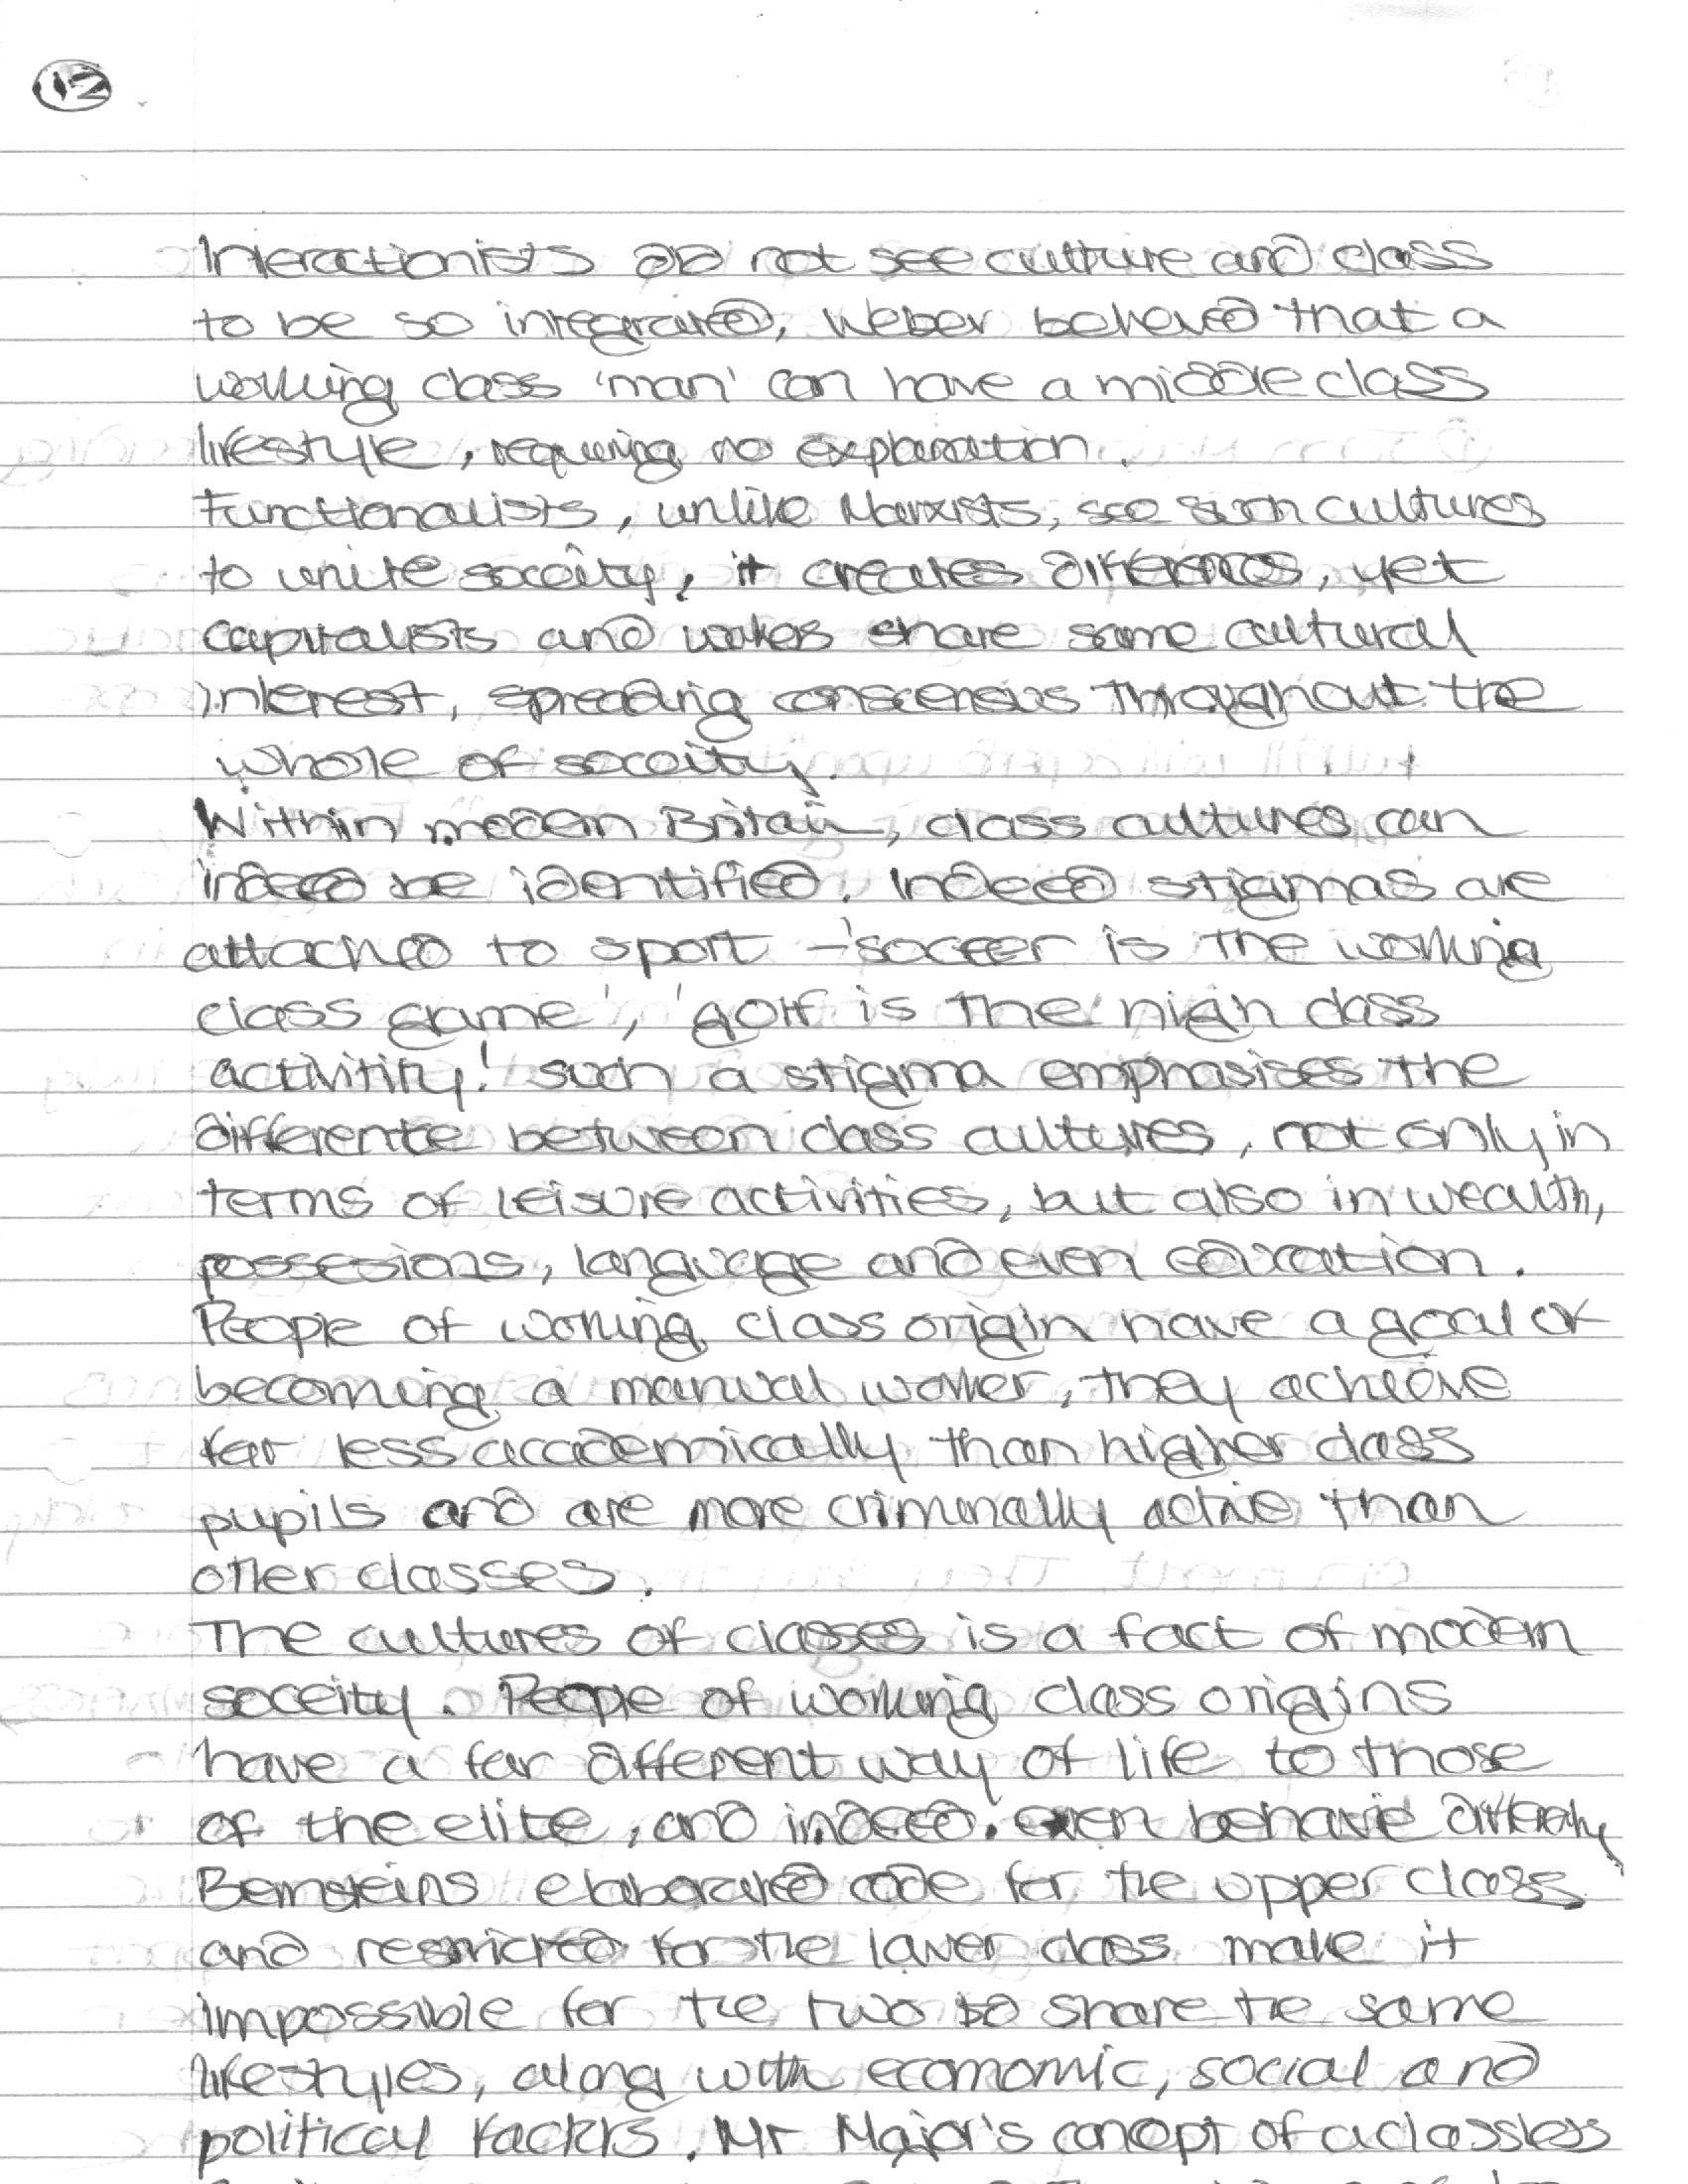 12
Interactionists do not see culture and class
to be so integrated, Weber believed that a
working class 'man' can have a middle class
lifestyle, requiring no explanation.
Functionalists, unlike Marxists, see such cultures
to unite soceity, it creates differences, yet
capitalists and workers share same cultural
interest, spreading conscensus throughout the
whole of soceity.
Within modern Britain, class cultures can
indeed be identified. Indeed stigmas are
attached to sport - 'soccer is the working
class game', 'golf is the high class
activitity!' such a stigma emphasises the
difference between class cultures, not only in
terms of leisure activities, but also in wealth,
possesions, language and even education.
People of working class origin have a goal of
becoming a manual worker, they achieve
far less accademically than higher class
pupils and are more criminally active than
other classes.
The cultures of classes is a fact of modern
soceity. People of working class origins
have a far different way of life to those
of the elite, and indeed even behave differently
Bernsteins elaborated code for the upper class
and restricted for the lower class make it
impossible for the two to share the same
lifestyles, along with economic, social and
political factors. Mr Major's concept of a classless